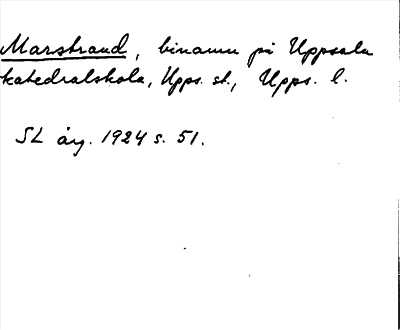 Marstrand, binamn på Uppsala
katedralskola, Upps. st., Upps. l.
SL årg. 1924 s. 51.